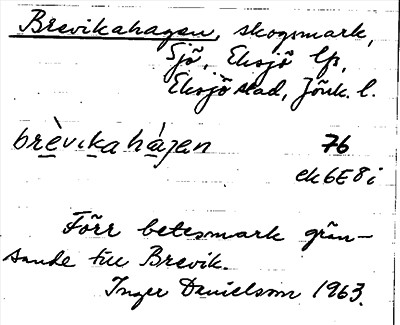 Brevikahagen, skogsmark,
Sjö, Eksjö lfs,
Eksjö stad, Jönk. l.
brèvikahájen 76
ek6E8i
Förr betesmark grän-
sande till Brevik.
Inger Danielsson 1963.